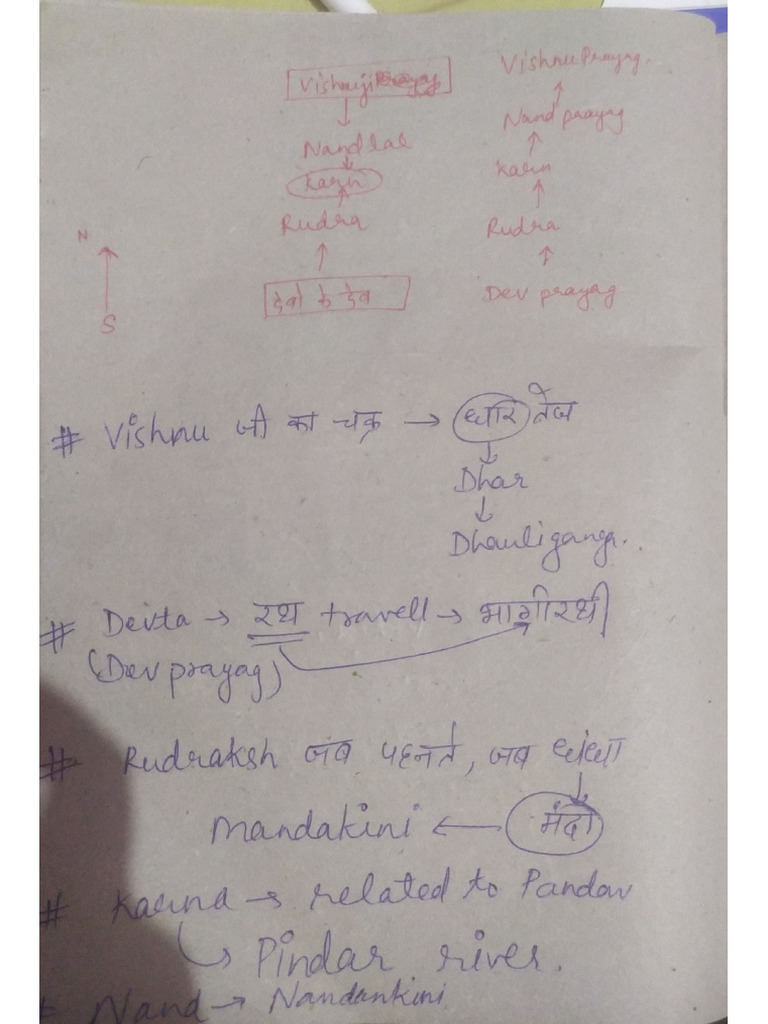 Vishnuji
Vishnu Prayag.
Nandlal
Nand prayag
Karn
Karn
Rudra
Rudra
N
S
देवो के देव
Dev prayag
# Vishnu जी का चक्र → धार तेज
Dhar
Dhauliganga.
# Devta → रथ travell → भागीरथी
(Dev prayag)
# Rudraksh जब पहनते, जब धंधा
Mandakini ← मंदा
# Karna → related to Pandav
Pindar river.
# Nand → Nandankini